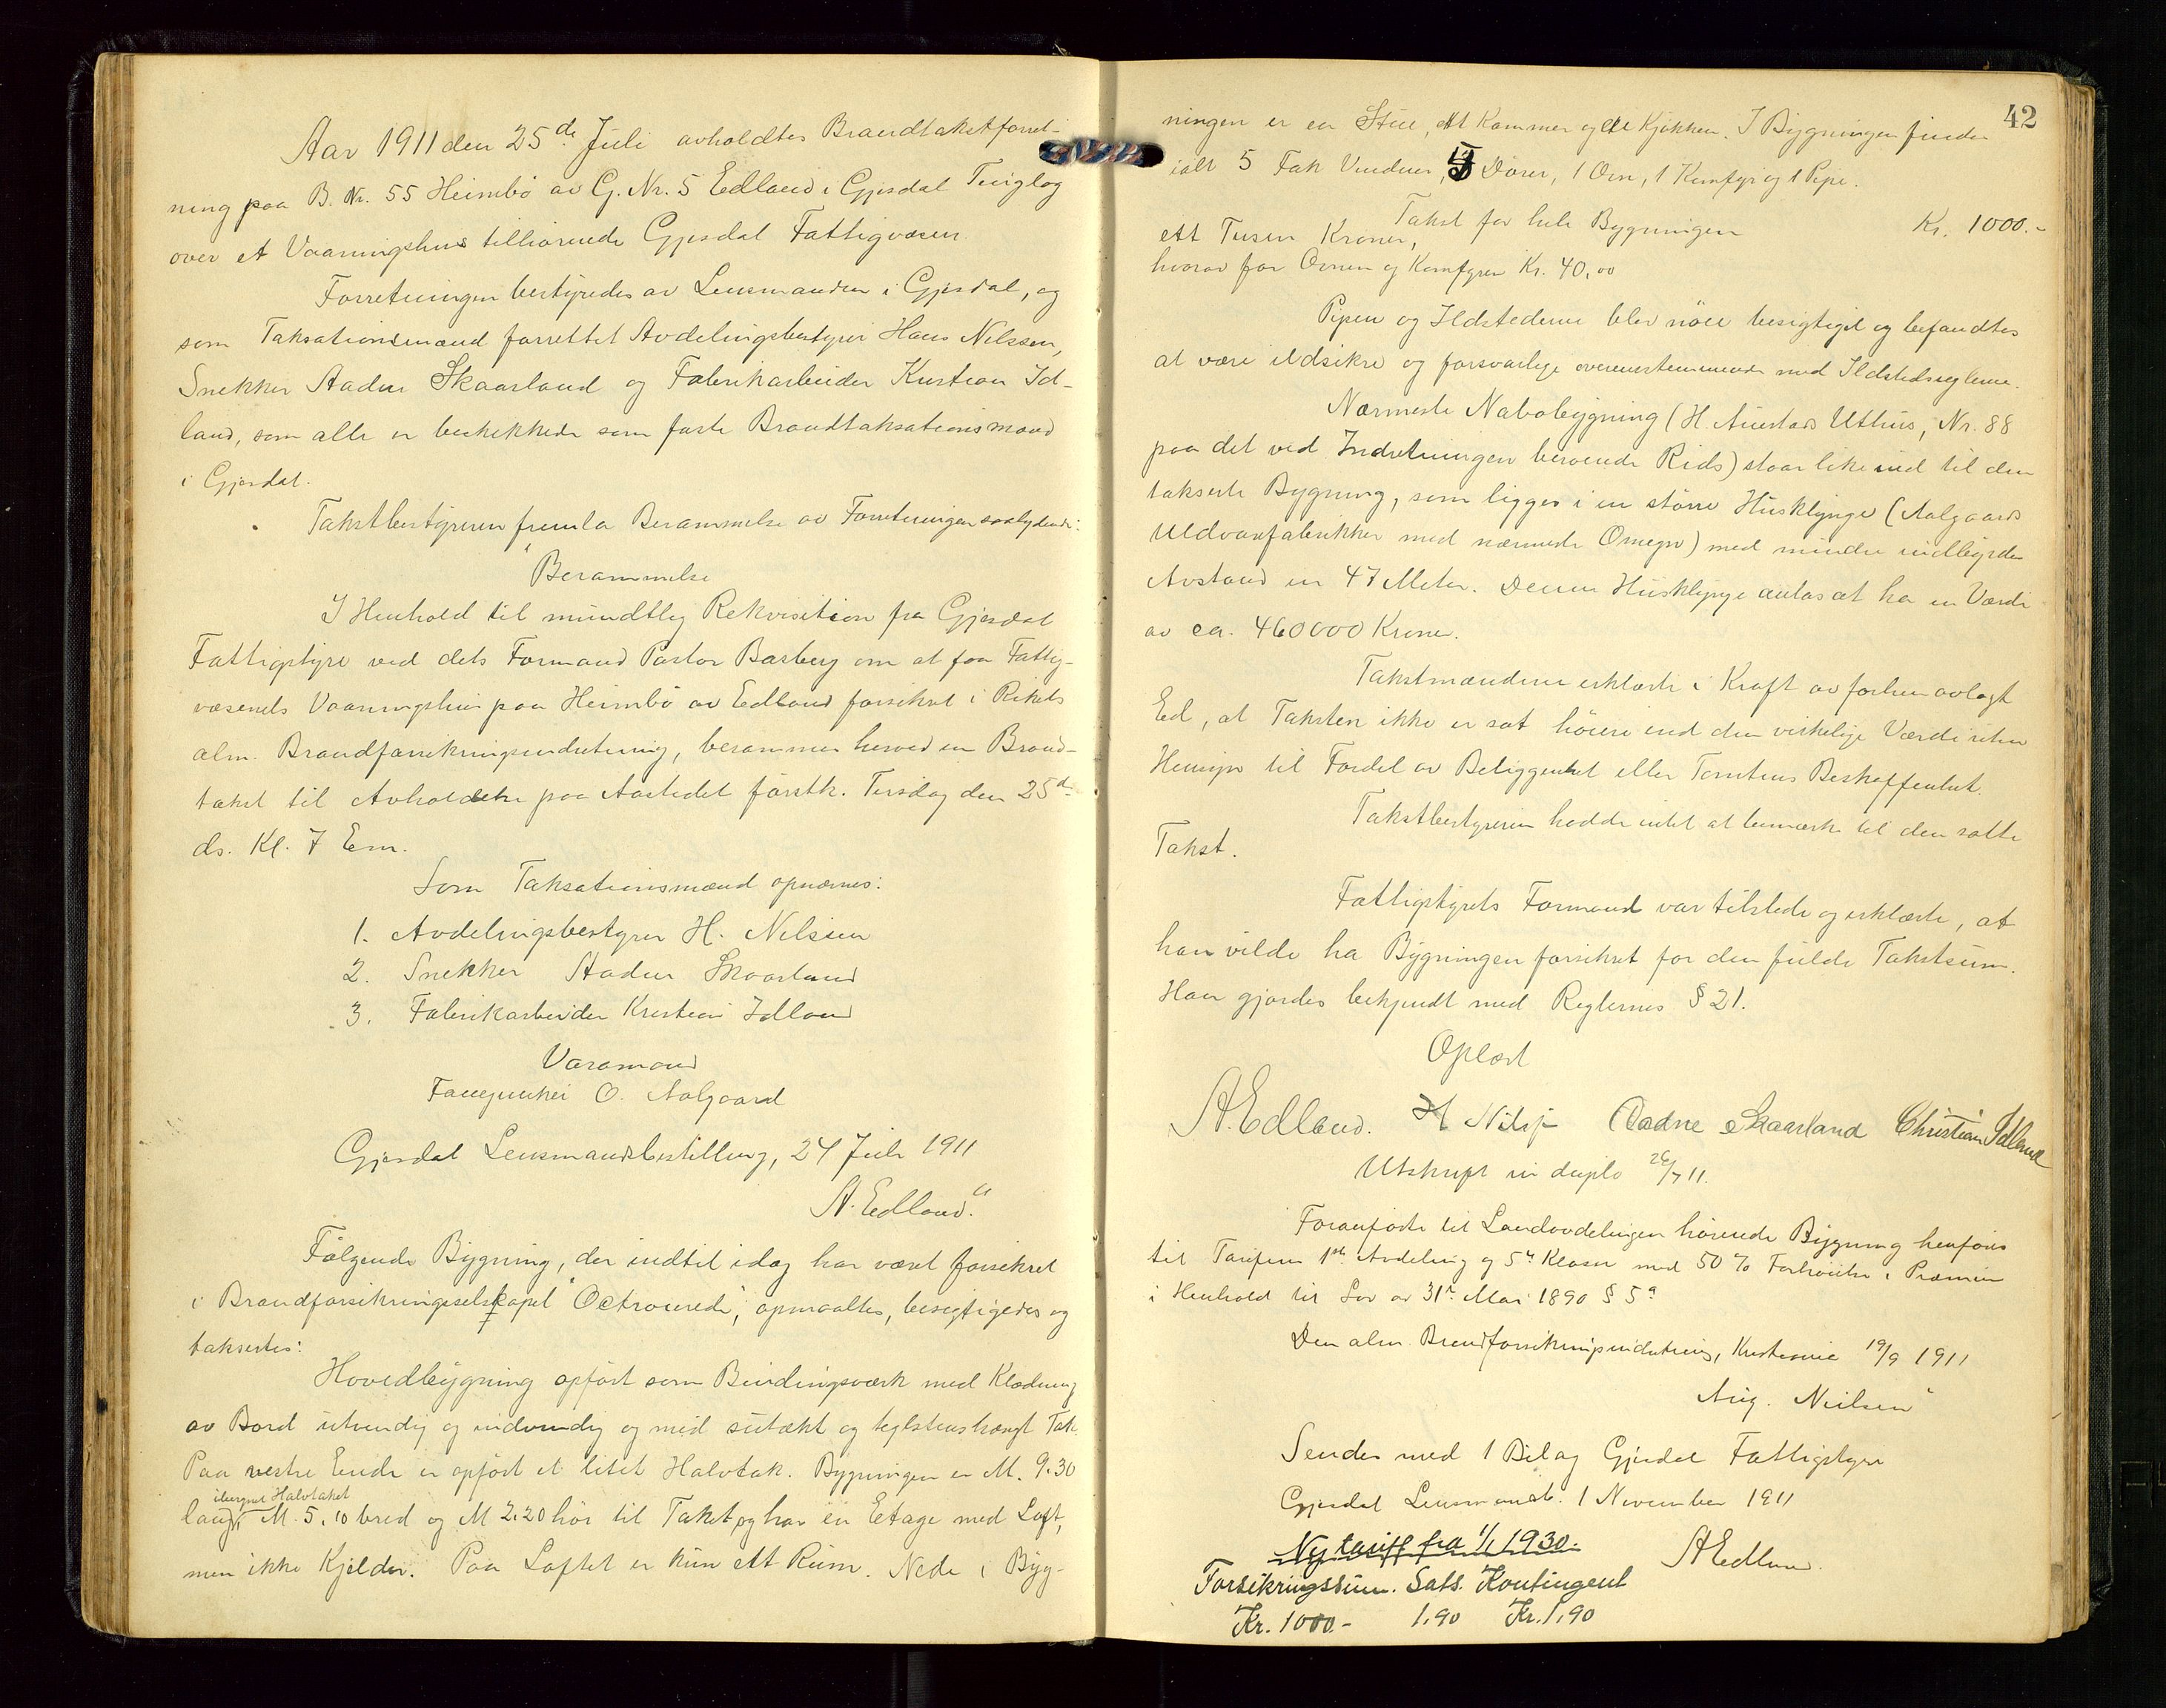 Aar 1911 den 25de Juli avholdtes Brandtakstforret-
ning paa B. Nr. 55 Heimbö av G. Nr. 5 Edland i Gjesdal Tinglag
over et Vaaningshus tilhørende Gjesdal Fattigvæsen
Forretningen bestyredes av Lensmanden i Gjesdal, og
som Taksationsmænd forrettet Avdelingsbestyrer Hans Nilssen,
Snekker Aadne Skaarland og Fabrikarbeider Kristian Id-
land, som alle er beskikkede som faste Brandtaksationsmænd
i Gjesdal.
Takstbestyreren fremla Berammelse av Forretningen saalydende:
"Berammelse
I Henhold til mundtlig Rekvisition fra Gjesdal
Fattigstyre ved dets Formand Pastor Basberg om at faa Fattig-
væsenets Vaaningshus paa Heimbö av Edland forsikret i Rikets
alm. Brandforsikringsindretning, berammes herved en Brand-
takst til Avholdelse paa Aastedet førstk. Tirsdag den 25de
ds. Kl. 7 Em.
Som Taksationsmænd opnævnes:
1. Avdelingsbestyrer H. Nilssen
2. Snekker Aadne Skaarland
3. Fabrikarbeider Kristian Idland
Varamand
O. Aalgaard
Gjesdal Lensmandsbestilling, 24 Juli 1911
A. Edland."
Følgende Bygning, der indtil idag har været forsikret
i Brandforsikringsselskapet "Octroierede", opmaaltes, besigtigedes og
taksertes:
Hovedbygning opført som Bindingsværk med Klædning
av Bord utvendig og indvendig og med sutækt og teglstenshængt Tak.
Paa vestre Ende er opført et litet Halvtak. Bygningen er M. 9.30
iberegnet Halvtaket
lang, M. 5.10 bred og M 2.20 høi til Taket og har en Etage med Loft,
men ikke Kjelder. Paa Loftet er kun ett Rum. Nede i Byg-
42
ningen er en Stue, ett Kammer og ett Kjøkken. I Bygningen findes
ialt 5 Fak Vinduer, 5 Døres, 1 Ovn, 1 Komfyr og 1 Pipe.
Takst for hele Bygningen Kr. 1000.-
ett Tusen Kroner,
hvorav for Ovnen og Komfyren Kr. 40,00
Pipen og Ildstederne blev nöie besigtiget og befandtes
at være ildsikre og forsvarlige overensstemmende med Ildstedsreglerne.
Nærmeste Nabobygning (H. Austads Uthus, Nr. 88
paa det ved Indretningen beroende Rids) staar like ind til den
takserte Bygning, som ligger i en større Husklynge (Aalgaards
Uldvarefabrikker med nærmeste Omegn) med mindre indbyrdes
Avstand en 47 Meter. Denne Husklynge antas at ha en Værdi
av ca. 460000 Kroner.
Takstmændene erklærte i Kraft av forhen avlagt
Ed, at Taksten ikke er sat høiere end den virkelige Værdi uten
Hensyn til Fordel av Beliggenhet eller Tomtens Beskaffenhet.
Takstbestyreren hadde intet at bemærke til den satte
Takst.
Fattigstyrets Formand var tilstede og erklærte, at
han vilde ha Bygningen forsikret for den fulde Takstsum.
Han gjordes bekjendt med Reglernes § 21.
Oplæst
A. Edland. H Nilss Aadne Skaarland Christian Idland
Utskrift in duplo 26/7 11.
Foranførte til Landavdelingen hørende Bygning henføres
til Tarifens 1ste Avdeling og 5te Klasse med 50 % Forhøielse i Præmien
i Henhold til Lov av 31te Mai 1890 § 5a
Den alm Brandforsikringsindretning, Kristiania 19/9 1911
Aug. Nielsen"
Sendes med 1 Bilag Gjesdal Fattigstyre
Gjesdal Lensmandsb. 1 November 1911
A Edland.
Ny tariff fra 1/1 1930.
Forsikringssum. Sats. Kontingent
Kr. 1000.- 1,90 Kr. 1,90